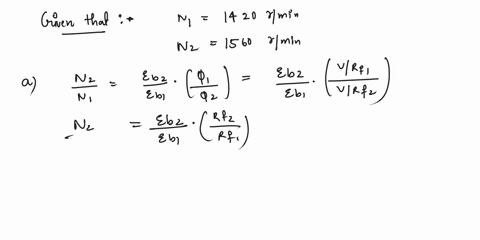 Given that :- N1 = 1420 r/min
N2 = 1560 r/min
a) N2/N1 = Eb2/Eb1 · (φ1/φ2) = Eb2/Eb1 · (V/Rf1 / V/Rf2)
N2 = Eb2/Eb1 · (Rf2/Rf1)